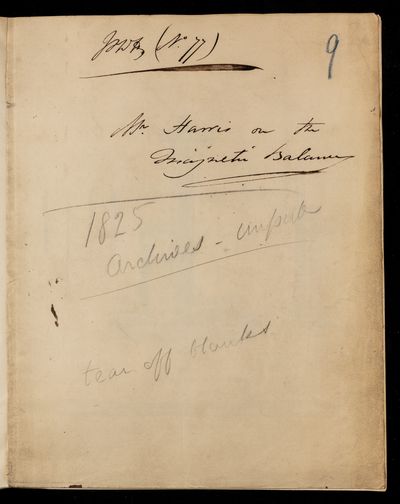 (No 77)
9
Mr. Harris on the
Magnetic Balance
1825
Archives -
tear off blanks